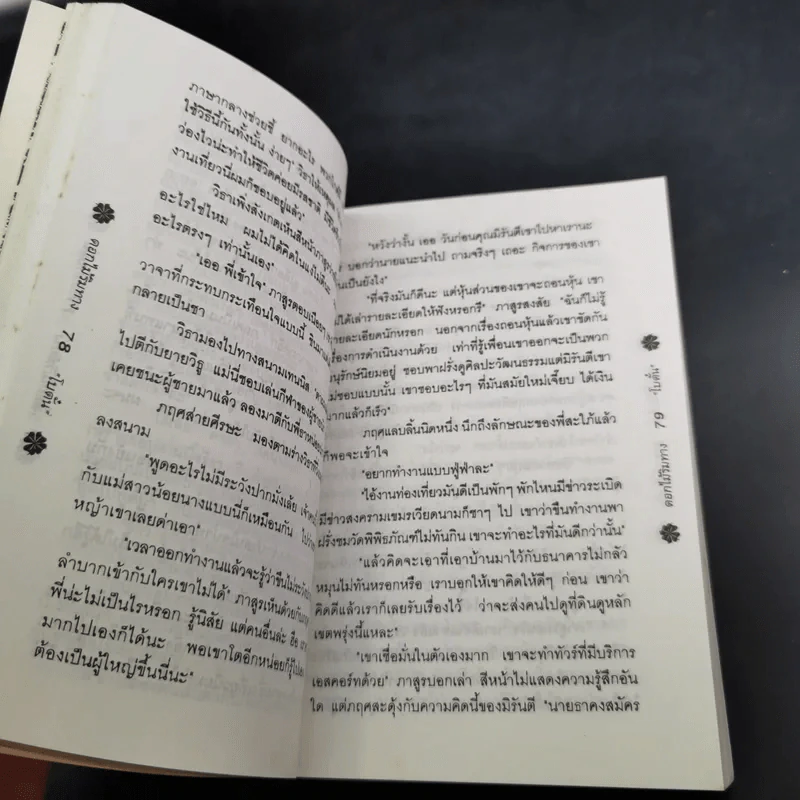 ภาษากลางช่วยชี้ ยากอะไร
ใช้วิธีนี้กันทั้งนั้น ง่ายๆ
ว่องไวน่ะทำให้ชีวิตค่อยมีรสชาติ
งานเที่ยวนี่ผมก็ชอบอยู่แล้ว"
วิธาเพิ่งสังเกตเห็นสีหน้าภาสูร
อะไรใช่ไหม ผมไม่ได้คิดในแง่
อะไรตรงๆ เท่านั้นเอง"
"เออ พี่เข้าใจ" ภาสูรตอบเนือยๆ
วาจาที่กระทบกระเทือนใจแบบนี้
กลายเป็นชา
วิธามองไปทางสนามเทนนิส
ไปตีกับยายวิฐู แม่นี่ชอบเล่นกีฬาของผู้ชาย
เคยชนะผู้ชายมาแล้ว ลองมาตีกับพี่
ภฤศส่ายศีรษะ มองตามร่างวิธาที่
ลงสนาม
"พูดอะไรไม่มีระวังปากมั่งเล้ย
กับแม่สาวน้อยนางแบบนี่ก็เหมือนกัน
หญ้าเขาเลยด่าเอา"
"เวลาออกทำงานแล้วจะรู้ว่าขืนไม่ระวัง
ลำบากเข้ากับใครเขาไม่ได้" ภาสูรเห็นด้วย
พี่น่ะไม่เป็นไรหรอก รู้นิสัย แต่คนอื่นล่ะ ฮือ
มากไปเองก็ได้นะ พอเขาโตอีกหน่อยก็รู้
ต้องเป็นผู้ใหญ่ขึ้นนี่นะ"
ดอกไม้ริมทาง 78 "โบตั๋น"
"หวังว่างั้น เออ วันก่อนคุณมิรันตีเขาไปหาเรานะ
บอกว่านายแนะนำไป ถามจริงๆ เถอะ กิจการของเขา
เป็นยังไง"
"ที่จริงมันก็ดีนะ แต่หุ้นส่วนของเขาจะถอนหุ้น เขา
ไม่ได้เล่ารายละเอียดให้ฟังหรอกรึ" ภาสูรสงสัย "ฉันก็ไม่รู้
รายละเอียดนักหรอก นอกจากเรื่องถอนหุ้นแล้วเขาขัดกัน
เรื่องการดำเนินงานด้วย เท่าที่รู้เพื่อนเขาออกจะเป็นพวก
อนุรักษ์นิยมอยู่ ชอบพาฝรั่งดูศิลปะวัฒนธรรมแต่มิรันตีเขา
ไม่ชอบแบบนั้น เขาชอบอะไรๆ ที่มันสมัยใหม่เจี๊ยบ ได้เงิน
มากแล้วก็เร็ว"
ภฤศแลบลิ้นนิดหนึ่ง นึกถึงลักษณะของพี่สะใภ้แล้ว
ก็พอจะเข้าใจ
"อยากทำงานแบบฟู่ฟ่าละ"
"ไอ้งานท่องเที่ยวมันดีเป็นพักๆ พักไหนมีข่าวระเบิด
มีข่าวสงครามเขมรเวียดนามก็ซาๆ ไป เขาว่าขืนทำงานพา
ฝรั่งชมวัดพิพิธภัณฑ์ไม่ทันกิน เขาจะทำอะไรที่มันดีกว่านั้น"
"แล้วคิดจะเอาที่เอาบ้านมาไว้กับธนาคารไม่กลัว
หมุนไม่ทันหรอกหรือ เราบอกให้เขาคิดให้ดีๆ ก่อน เขาว่า
คิดดีแล้วเราก็เลยรับเรื่องไว้ ว่าจะส่งคนไปดูที่ดินดูหลัก
เขตพรุ่งนี้แหละ"
"เขาเชื่อมั่นในตัวเองมาก เขาจะทำทัวร์ที่มีบริการ
เอสคอร์ทด้วย" ภาสูรบอกเล่า สีหน้าไม่แสดงความรู้สึกอัน
ใด แต่ภฤศสะดุ้งกับความคิดนี้ของมิรันตี "นายธาคงสมัคร
ดอกไม้ริมทาง 79 "โบตั๋น"